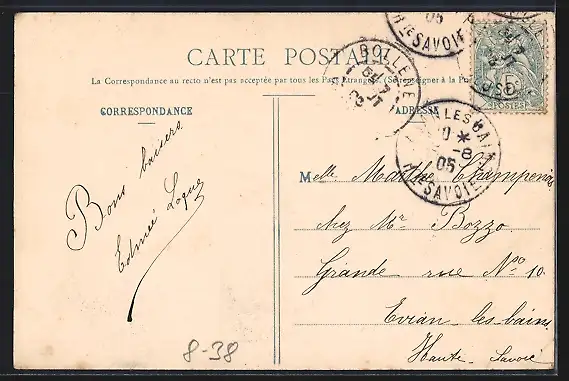 CARTE POSTALE
La Correspondance au recto n'est pas acceptée par tous les Pays Etrangers. (Se renseigner à la Pos
CORRESPONDANCE
ADRESSE
Bons baisers
Melle Marthe Champenois
chez Mr Bozzo
Grande rue No 10
Evian-les-bains
Haute-Savoie
8-38
BOLLENE
05
LES BAINS
8
05
Hte SAVOIE
05
Hte SAVOIE
5
POSTES